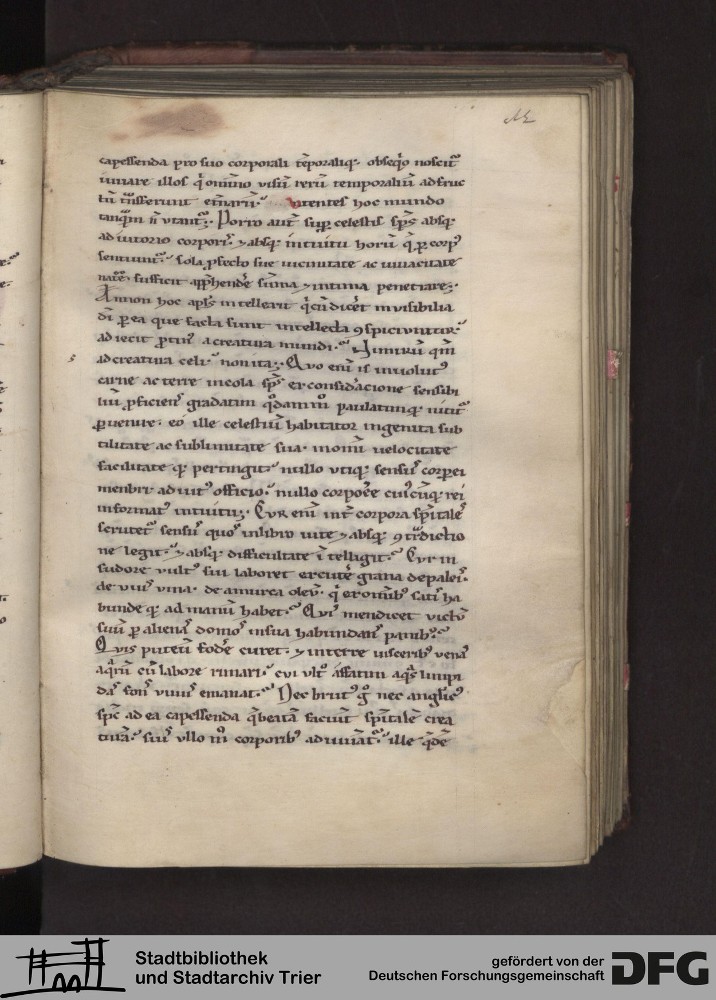 capessenda pro suo corporali tēporaliq; obseqio noscit᷑
iuuare illos q̄ omīno visū rerū temporaliū ad fruc
tū tn̄sferunt et̄narū. utentes hoc mundo
tanq̄m n̄ utant᷑. Porro aut̄ sup celestis sp̄s absq;
adiutorio corporis. ⁊ absq; intuitu horū q̄ p corp⁹
sentiunt᷑. sola pfecto sue uicinitate ac uiuacitate
nat̄e. sufficit app̄hendē sūma ⁊ intima penetrare.
Annon hoc apl̄s intellexit q̄ cū dicēt inuisibilia
dī p ea que facta sunt intellecta ꝯspiciuntur.
adiecit ptin⁹ a creatura mundi. Nimirū qm̄
ad creatura celi non ita. Quo enī is inuolut⁹
carne ac terre incola sp̄s ex consid̄acione sensibi
liū pficiens gradatim q̄dammō paulatimq; nitit᷑
puenire. eo ille celestiū habitator ingenita sub
tilitate ac sublimitate sua. momū uelocitate
facilitate q; pertingit. nullo utiq; sensus corporei
menbri adiut⁹ officio. nullo corpoēe cuiuscūq; rei
informat⁹ intuitu. Cur enī int̄ corpora sp̄itales
scrutet᷑ sensus quos in libro uite ⁊ absq; ꝯt̄dictio
ne legit. ⁊ absq; difficultate ītelligit. Cur in
sudore uult⁹ sui laboret excutē grana de paleis.
de uuis uina. de amurca oleū. q̄ ex omīb⁹ satis ha
bunde q; ad manū habet. Quis mendicet uictū
suū p alienas domos in sua habundans panib⁹.
Quis puteū fodē curet. ⁊ in terre uiscerib⁹ uenas
aq̄rū cū labore rimari. cui ult᷑ affatim aq̄s limpi
das fons uiuus emanat. Nec brut⁹ g̊ nec anglic⁹
sp̄c ad ea capessenda q̄ beatā faciūt sp̄italē crea
turā. suis ullo m̄ corporib⁹ adiuuat᷑. ille q̄dē
Stadtbibliothek
und Stadtarchiv Trier
gefördert von der
Deutschen Forschungsgemeinschaft
DFG